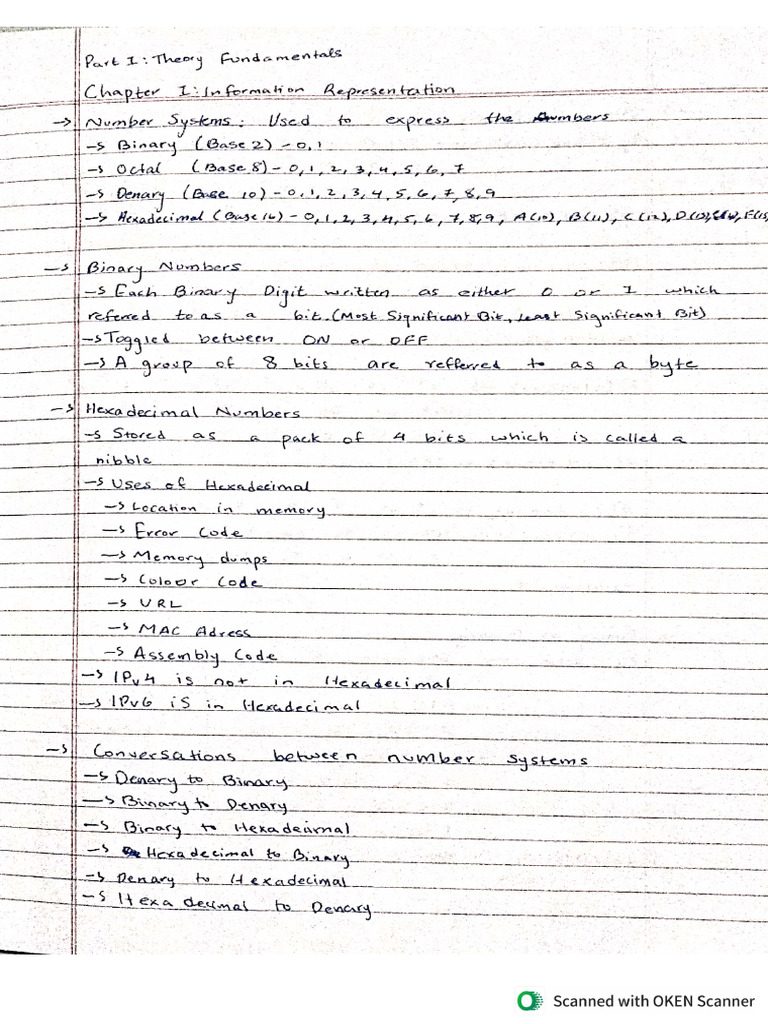 Part I: Theory Fundamentals
Chapter I: Information Representation
→ Number Systems: Used to express the numbers
→ Binary (Base 2) - 0, 1
→ Octal (Base 8) - 0, 1, 2, 3, 4, 5, 6, 7
→ Denary (Base 10) - 0, 1, 2, 3, 4, 5, 6, 7, 8, 9
→ Hexadecimal (Base 16) - 0, 1, 2, 3, 4, 5, 6, 7, 8, 9, A(10), B(11), C(12), D(13), E(14), F(15)
→ Binary Numbers
→ Each Binary Digit written as either 0 or 1 which
referred to as a bit. (Most Significant Bit, Least Significant Bit)
→ Toggled between ON or OFF
→ A group of 8 bits are refferred to as a byte
→ Hexadecimal Numbers
→ Stored as a pack of 4 bits which is called a
nibble
→ Uses of Hexadecimal
→ Location in memory
→ Error Code
→ Memory dumps
→ Colour Code
→ URL
→ MAC Adress
→ Assembly Code
→ IPv4 is not in Hexadecimal
→ IPv6 is in Hexadecimal
→ Conversations between number systems
→ Denary to Binary
→ Binary to Denary
→ Binary to Hexadecimal
→ Hexadecimal to Binary
→ Denary to Hexadecimal
→ Hexadecimal to Denary
Scanned with OKEN Scanner